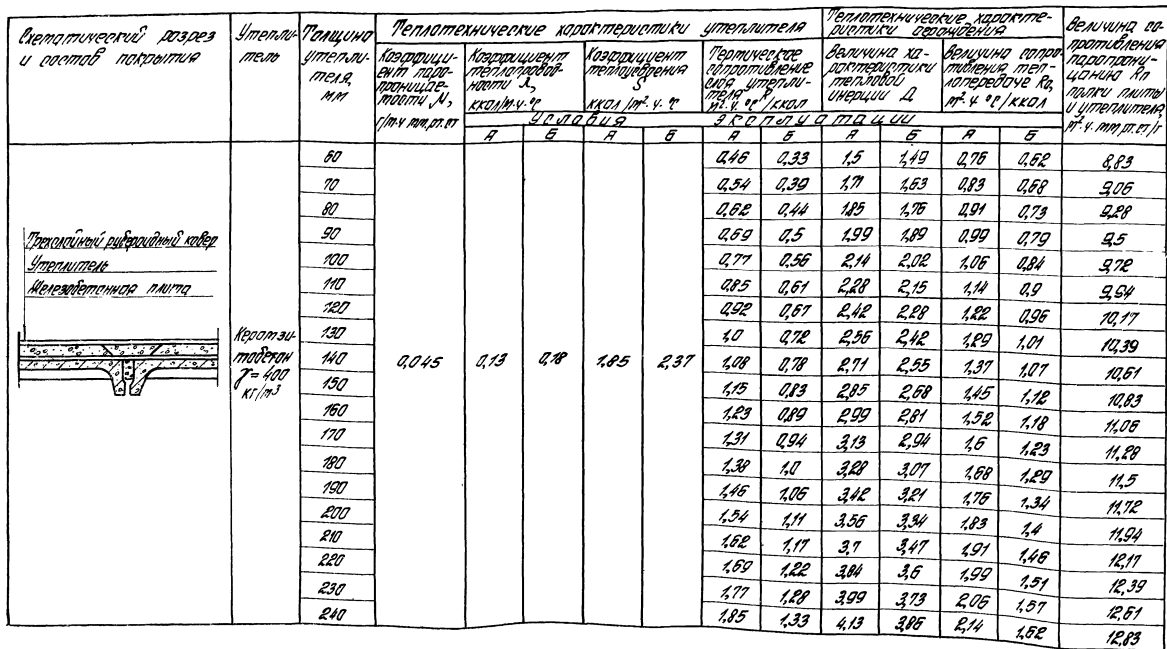 Схематический разрез и состав покрытия
Утеплитель
Толщина утеплителя, мм
Теплотехнические характеристики утеплителя
Теплотехнические характеристики ограждения
Величина сопротивления паропроницанию Rп полки плиты и утеплителя, м². ч. мм. рт. ст/г
Коэффициент паропроницаемости М, г/м.ч мм. рт. ст
Коэффициент теплопроводности λ, ккал/м.ч. °С
Коэффициент теплоусвоения S ккал/м². ч. °С
Термическое сопротивление слоя утеплителя R м². ч. °С/ккал
Величина характеристики тепловой инерции Д
Величина сопротивления теплопередаче Rо, м². ч °С/ккал
Условия эксплуатации
А Б А Б А Б А Б А Б
Трехслойный рубероидный ковер
Утеплитель
Железобетонная плита
Керамзитобетон γ=400 кг/м³
0,045 0,13 0,18 1,85 2,37
60 0,46 0,33 1,5 1,49 0,76 0,62 8,83
70 0,54 0,39 1,71 1,63 0,83 0,68 9,06
80 0,62 0,44 1,85 1,76 0,91 0,73 9,28
90 0,69 0,5 1,99 1,89 0,99 0,79 9,5
100 0,77 0,56 2,14 2,02 1,06 0,84 9,72
110 0,85 0,61 2,28 2,15 1,14 0,9 9,94
120 0,92 0,67 2,42 2,28 1,22 0,96 10,17
130 1,0 0,72 2,56 2,42 1,29 1,01 10,39
140 1,08 0,78 2,71 2,55 1,37 1,07 10,61
150 1,15 0,83 2,85 2,68 1,45 1,12 10,83
160 1,23 0,89 2,99 2,81 1,52 1,18 11,06
170 1,31 0,94 3,13 2,94 1,6 1,23 11,28
180 1,38 1,0 3,28 3,07 1,68 1,29 11,5
190 1,46 1,06 3,42 3,21 1,76 1,34 11,72
200 1,54 1,11 3,56 3,34 1,83 1,4 11,94
210 1,62 1,17 3,7 3,47 1,91 1,46 12,17
220 1,69 1,22 3,84 3,6 1,99 1,51 12,39
230 1,77 1,28 3,99 3,73 2,06 1,57 12,61
240 1,85 1,33 4,13 3,86 2,14 1,62 12,83